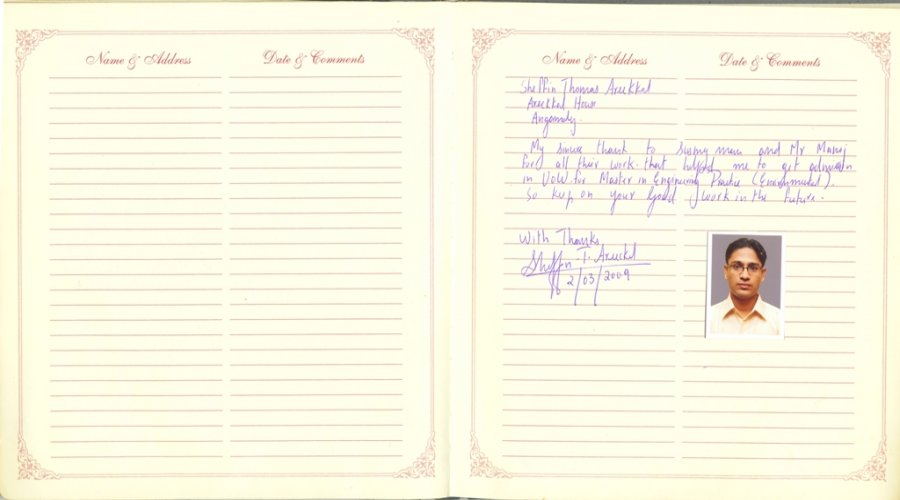 Name & Address
Date & Comments
Name & Address
Date & Comments
Sheffin Thomas Areekkal
Areekkal House
Angamaly.
My sincere thank to mam and Mr Manoj
for all their work. that helped me to get admission
in UOW for Master in Engineering Practice (Environmental).
So keep on your good work in the future.
With Thanks
Sheffin T. Areekkal
2/03/2009